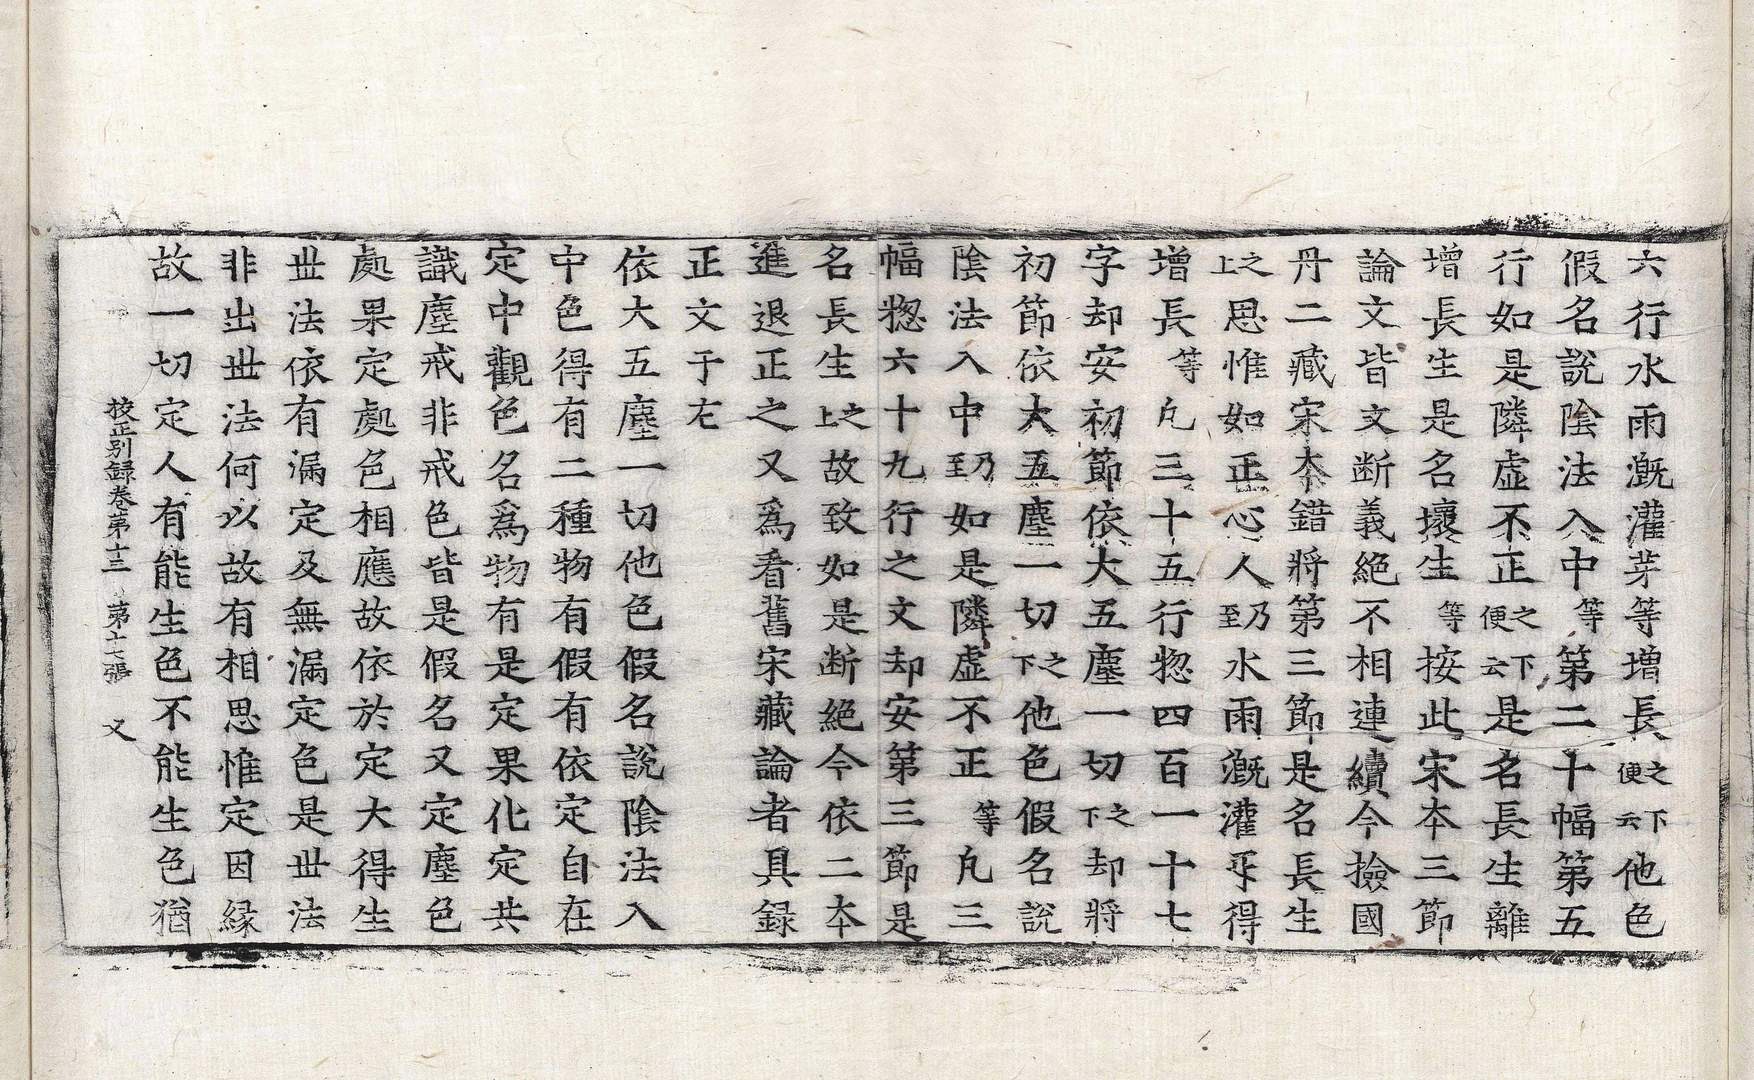 六行水雨漑灌芽等增長之下便云他色
假名說陰法入中等第二十幅第五
行如是隣虛不正之下便云是名長生離
增長生是名壞生等按此宋本三節
論文皆文断義絶不相連續今撿國
丹二藏宋本錯將第三節是名長生
之上思惟如正心人乃至水雨漑灌牙得
增長等凡三十五行惣四百一十七
字却安初節依大五塵一切之下却將
初節依大五塵一切之下他色假名說
陰法入中乃至如是隣虛不正等凡三
幅惣六十九行之文却安第三節是
名長生之上故致如是断絶今依二本
進退正之又爲看舊宋藏論者具録
正文于左
依大五塵一切他色假名說陰法入
中色得有二種物有假有依定自在
定中觀色名爲物有是定果化定共
識塵戒非戒色皆是假名又定塵色
處果定處色相應故依於定大得生
世法依有漏定及無漏定色是世法
非出世法何以故有相思惟定因縁
故一切定人有能生色不能生色猶
校正别録卷第十三 第十七張 又